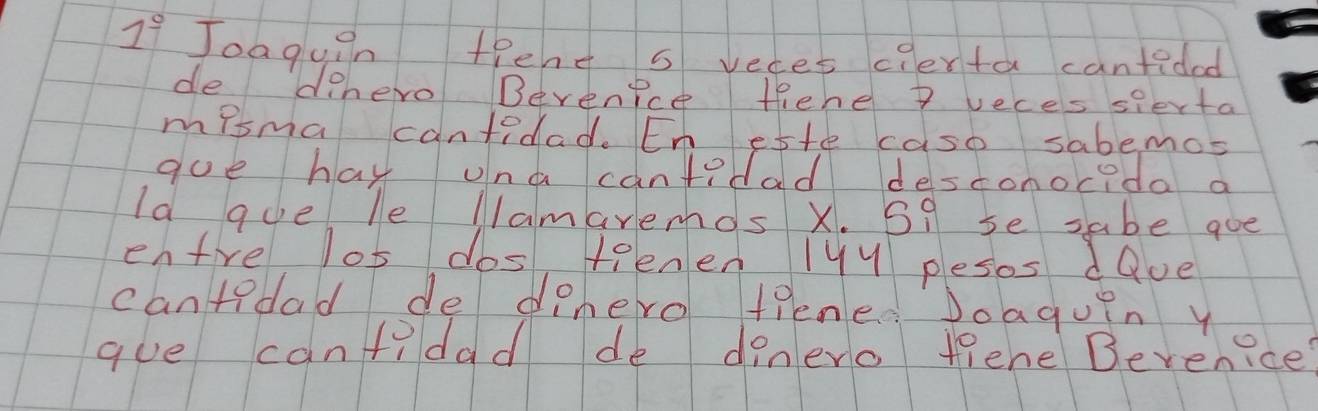 1º Joaquin tiene 5 veces cierta cantidad
de dinero Berenice tiene 7 veces sierta
misma cantidad. En este caso sabemos
que hay una cantidad desconocida a
la que le llamaremos X. Si se sabe que
entre los dos tienen 144 pesos ¿Que
cantidad de dinero tiene Joaquin y
que cantidad de dinero tiene Berenice?